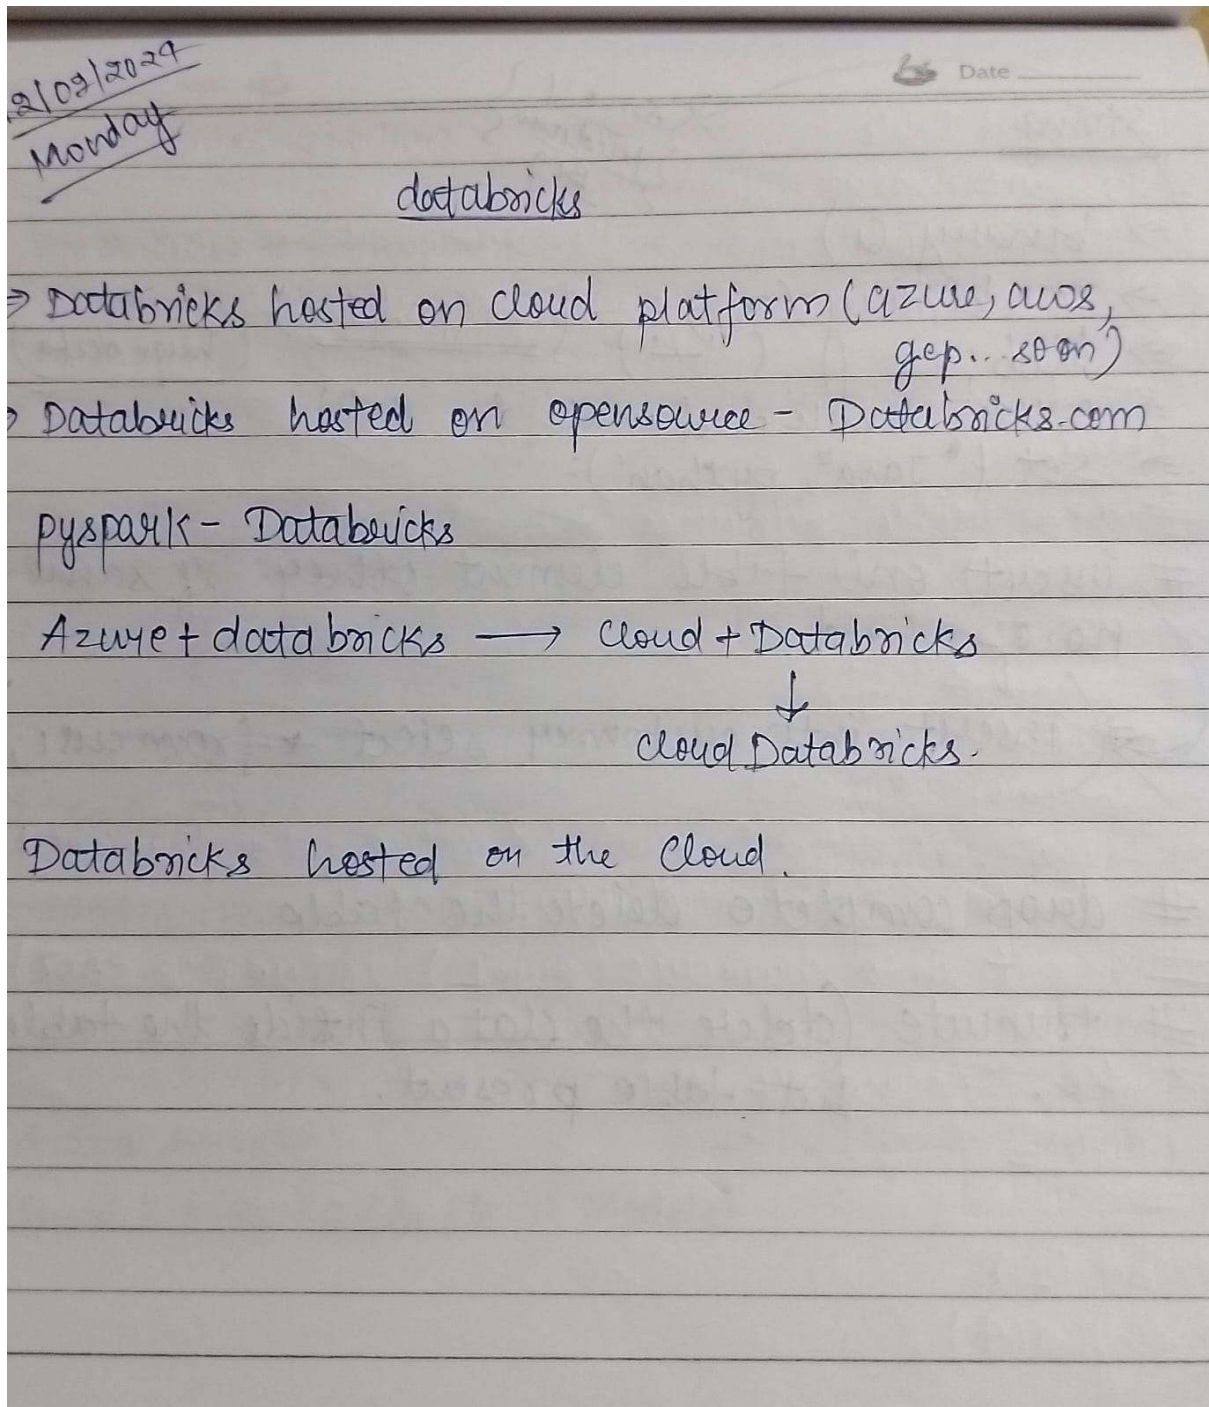 2/02/2024
Monday
Date
databricks
⇒ Databricks hosted on cloud platform (azure, aws,
gcp... so on)
⇒ Databricks hosted on opensource - Databricks.com
pyspark - Databricks
Azure + databricks → Cloud + Databricks
↓
Cloud Databricks.
Databricks hosted on the Cloud.